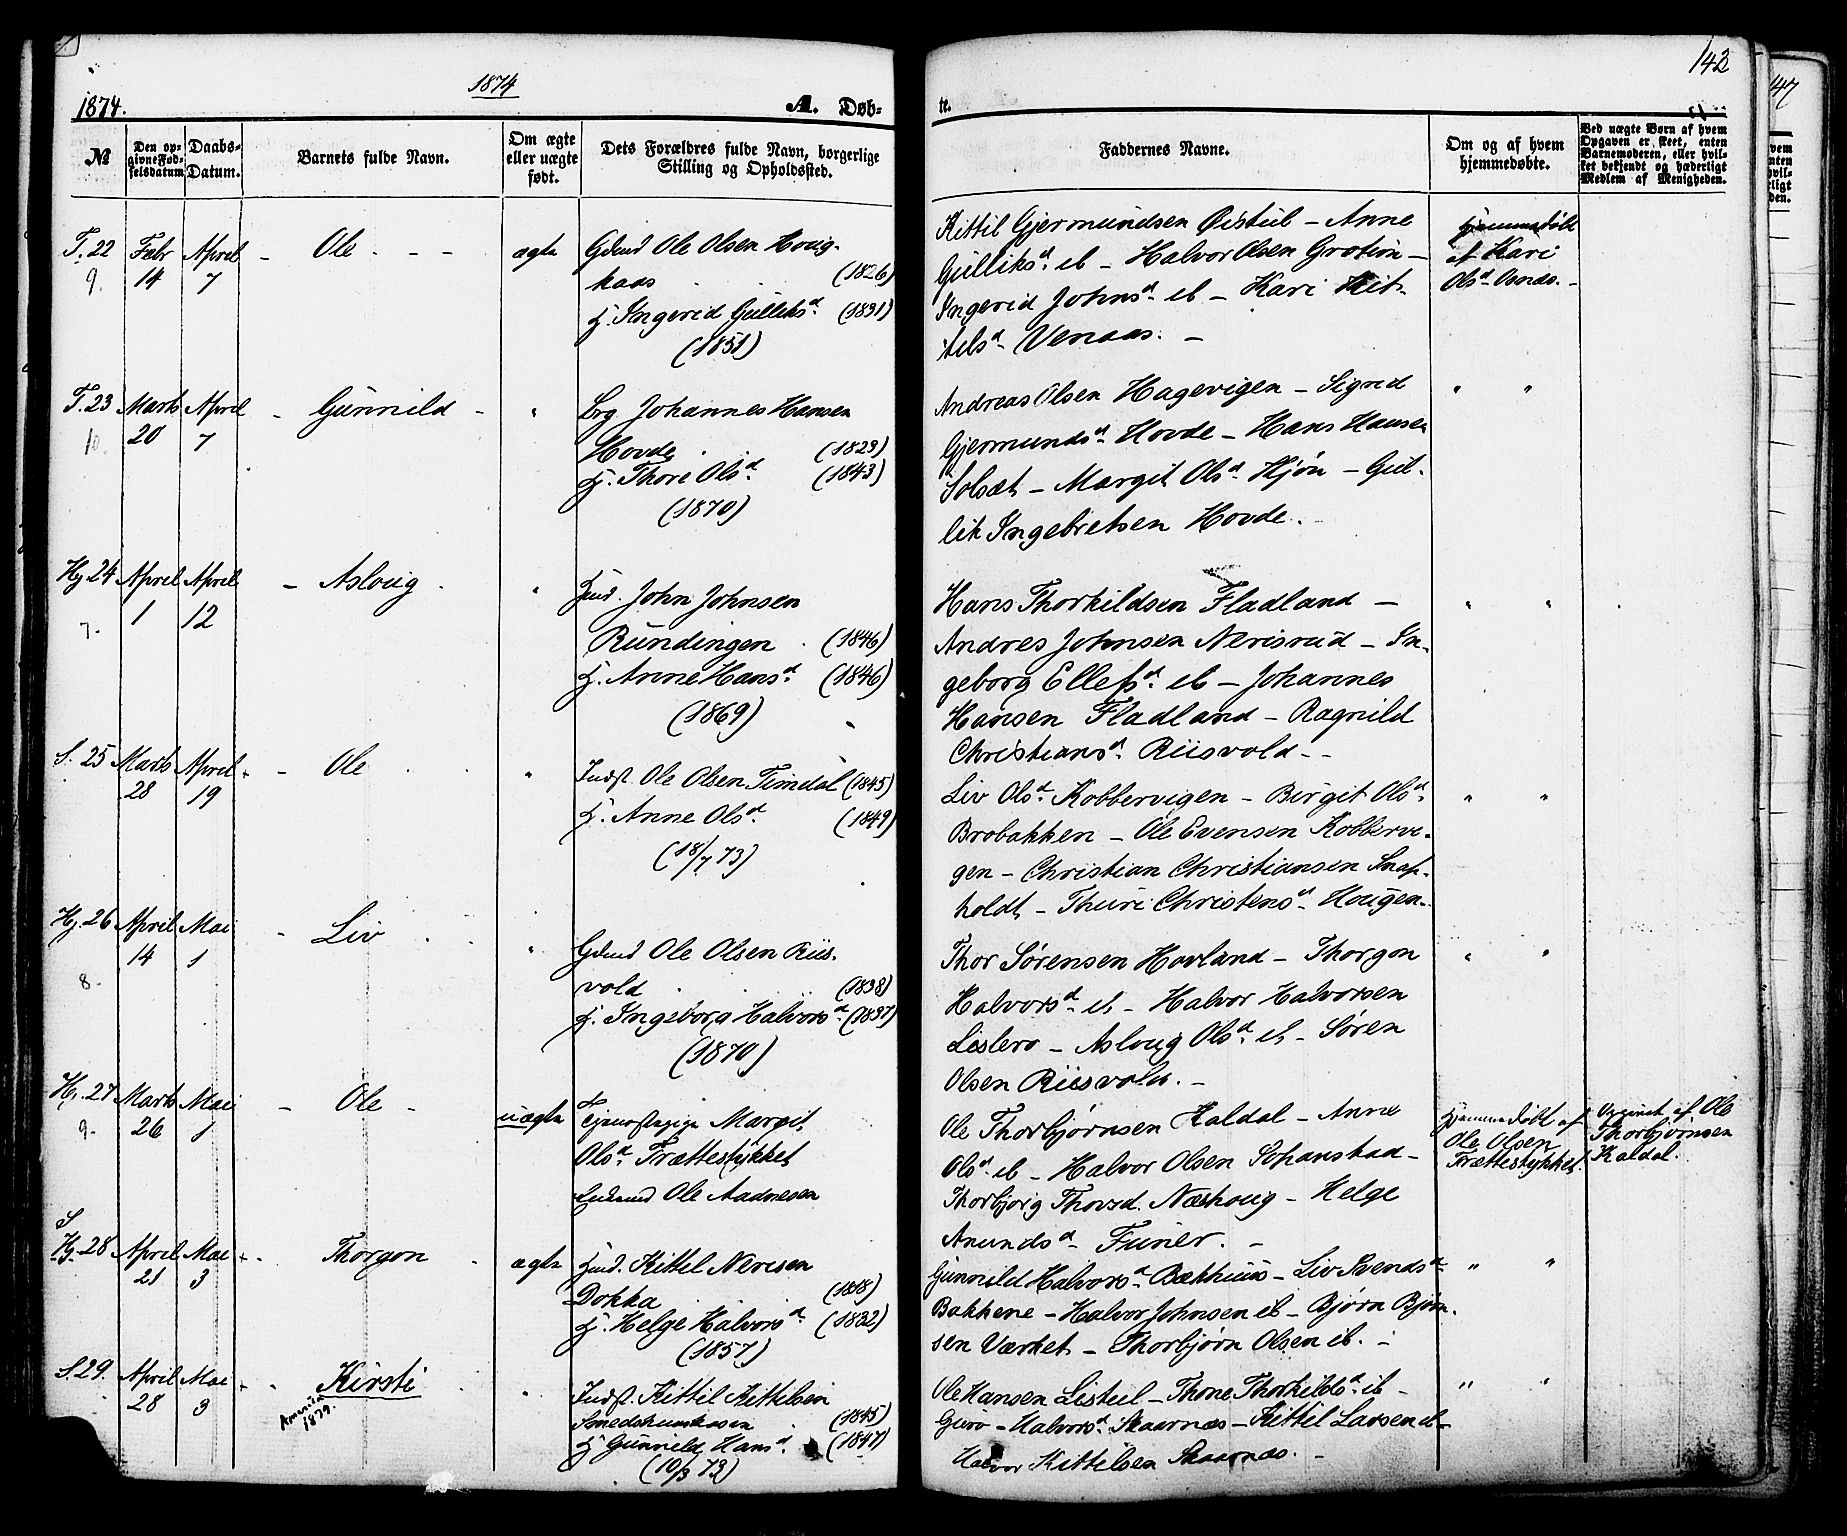 1874
142
1874.
A. Døb-
te.
№
Den op-
givne Fød-
selsdatum
Daabs-
Datum.
Barnets fulde Navn.
Om ægte
eller uægte
født.
Dets Forældres fulde Navn, borgerlige
Stilling og Opholdssted.
Faddernes Navne.
Om og af hvem
hjemmedøbte.
Ved uægte Børn af hvem
Opgaven er skeet, enten
Barnemoderen, eller hvil-
ket bekjendt og hæderligt
Medlem af Menigheden.
T. 22 Febr April Ole ægte Gdmd Ole Olsen Houg-
9. 14 7 kaas (1826)
K. Ingerid Gulliksd. (1831)
(1851)
Kittil Gjermundsen Øistul – Anne
Gulliksd. ib – Halvor Olsen Grotim –
Ingerid Johnsd. ib – Kari Kit-
tilsd. Venaas. –
Hjemmedøbt
af Kari
Olsd. Venaas. –
T. 23 Marts April Gunnild " Brg Johannes Hansen
10. 20 7 Hovde (1823)
K. Thore Olsd. (1843)
(1870)
Andreas Olsen Hagevigen – Sigrid
Gjermundsd. Hovde – Hans Hansen
Solsæt – Margit Olsd. Hjøn – Gul-
lik Ingebretsen Hovde. –
" "
Hj. 24 April April Asloug " Hmd. John Johnsen
7. 1 12 Rundingen (1846)
K. Anne Hansd. (1846)
(1869)
Hans Thorkildsen Fladland –
Andres Johnsen Nerisrud – In-
geborg Ellefsd. ib – Johannes
Hansen Fladland – Ragnild
Christiansd. Riisvold. –
" "
S. 25 Marts April Ole " Indst. Ole Olsen Timdal (1845)
28 19 K. Anne Olsd. (1849)
(18/7 73)
Liv Olsd. Kobbervigen – Birgit Olsd.
Brobakken – Ole Evensen Kobbervi-
gen – Christian Christiansen Snap-
holdt – Thuri Christensd. Hougen.
" "
Hj. 26 April Mai Liv " Gdmd Ole Olsen Riis-
8. 14 1 vold (1838)
K. Ingeborg Halvorsd. (1837)
(1870)
Thor Sørensen Hovland – Thorgon
Halvorsd. ib – Halvor Halvorsen
Leslero – Asloug Olsd. ib – Søren
Olsen Riisvold. –
" "
Hj. 27 Marts Mai Ole uægte Tjenestepige Margit
9. 26 1 Olsd. Trættestykket
Ole Aadnesen
Ole Thorbjørnsen Kaldal – Anne
Olsd. ib – Halvor Olsen –
Thorbjørg Thovsd. Næshoug – Helge
Anundsd. Funer. –
Hjemmedøbt af
Ole Olsen
Trættestykket.
Opgivet af Ole
Thorbjørnsen
Kaldal.
S
Hj. 28 April Mai Thorgon ægte Hmd. Kittel Nerisen
21 3 Dokka (1818)
K. Helge Halvorsd. (1832)
(1857)
Gunnild Halvorsd. Bækhuus – Liv Svendsd.
Bakkene – Halvor Johnsen ib – Bjørn Bjørn-
sen Værket – Thorbjørn Olsen ib. –
" "
S. 29. April Mai Kirsti " Indst. Kittil Kittilsen
28 3 Smedshuuskaasen (1845)
K. Gunnild Hansd. (1847)
(10/3 72)
Amerika
1879.
Ole Hansen Listul – Thone Thorkildsd. ib –
Guro Halvorsd. Skaarnæs – Kittil Larsen ib –
Halvor Kittilsen Skaarnæs. –
" "